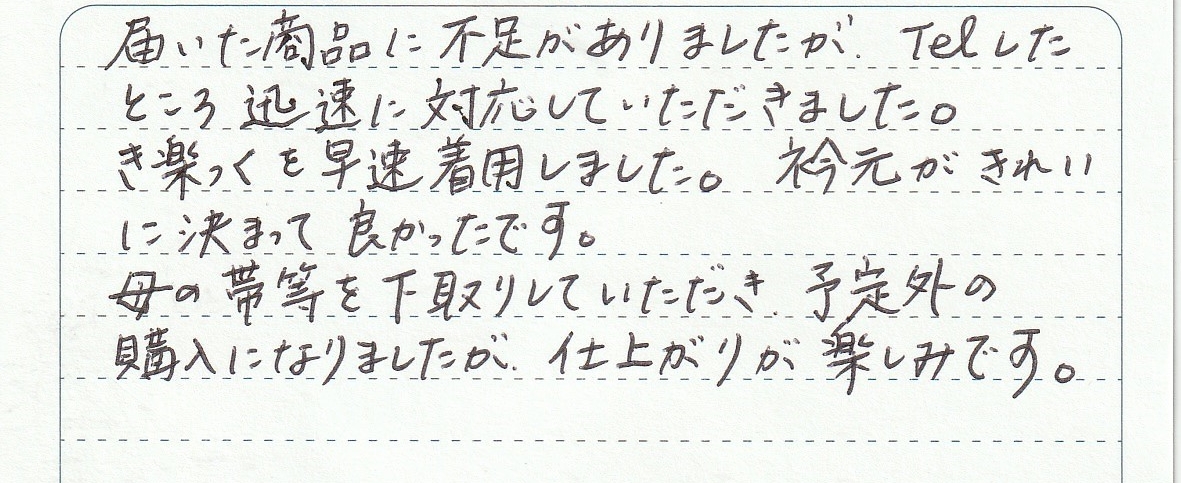 届いた商品に不足がありましたが、Telした
ところ迅速に対応していただきました。
き楽っくを早速着用しました。 衿元がきれい
に決まって良かったです。
母の帯等を下取りしていただき、予定外の
購入になりましたが、仕上がりが楽しみです。